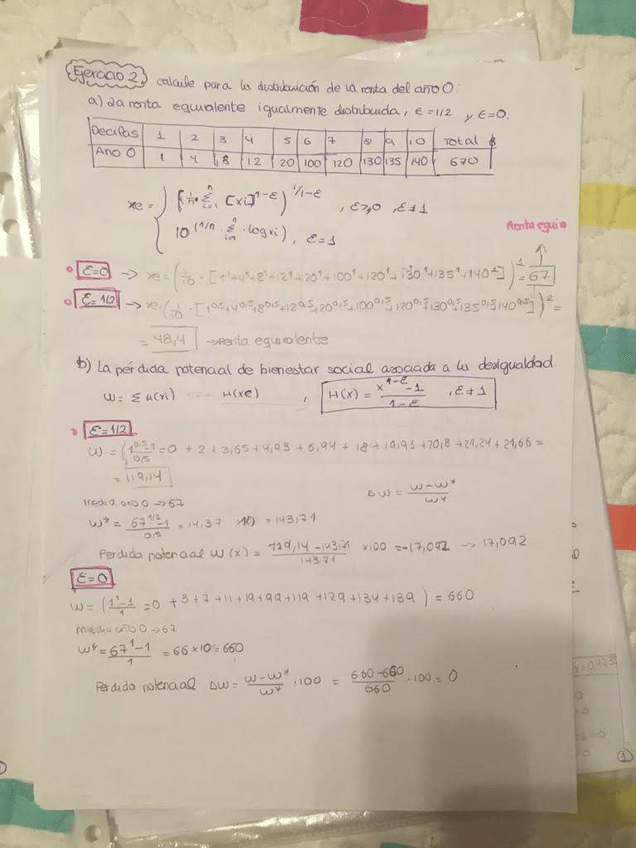 Ejercicio 2. calcule para la distribuición de la renta del año 0:
a) La renta equivalente igualmente distribuida, ε=1/2 y ε=0.
Decilas 1 2 3 4 5 6 7 8 9 10 Total
Ano 0 1 4 8 12 20 100 120 130 135 140 670
xe = { [1/n · Σ [xi]^1-ε)^1/1-ε , ε≥0 , ε≠1
10^(1/n · Σ · logxi) , ε=1
Renta equi
ε=0 → xe = (1/10 · [1¹+4¹+8¹+12¹+20¹+100¹+120¹+130¹+135¹+140¹])¹ = 67
ε=1/2 → xe = (1/10 · [1^0,5+4^0,5+8^0,5+12^0,5+20^0,5+100^0,5+120^0,5+130^0,5+135^0,5+140^0,5])² =
= 48,4 → Renta equivalente
b) La pérdida potencial de bienestar social asociada a la desigualdad.
W = Σ H(xi) ..... H(xe) , H(x) = x^1-ε -1 / 1-ε , ε≠1
ε=1/2
W = (1^0,5-1 / 0,5 = 0 + 2 + 3,65 + 4,93 + 6,94 + 18 + 19,91 + 20,8 + 21,24 + 21,66 =
= 119,14
media año 0 → 67
ΔW = W-W* / W*
W* = 67^1/2 -1 / 0,5 = 14,37 · 10 = 143,71
Perdida potencial W(x) = 119,14 - 143,71 / 143,71 × 100 = -17,092 → 17,092
ε=0
W = (1¹-1 / 1 = 0 + 3 + 7 + 11 + 19 + 99 + 119 + 129 + 134 + 139) = 660
media año 0 → 67
W* = 67¹-1 / 1 = 66 × 10 = 660
Perdida potencial ΔW = W-W* / W* · 100 = 660-660 / 660 · 100 = 0